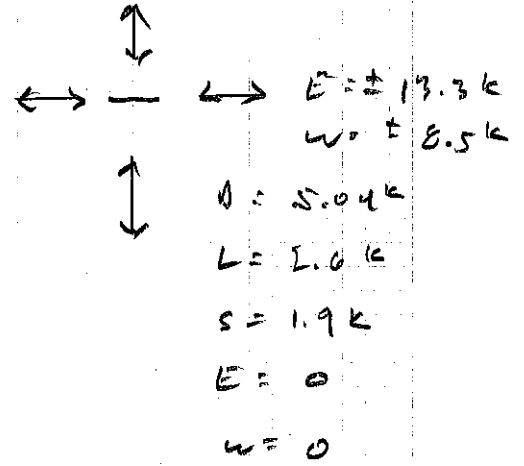 E = ± 13.3 k
W = ± 8.5 k
D = 5.04 k
L = 1.6 k
S = 1.9 k
E = 0
W = 0